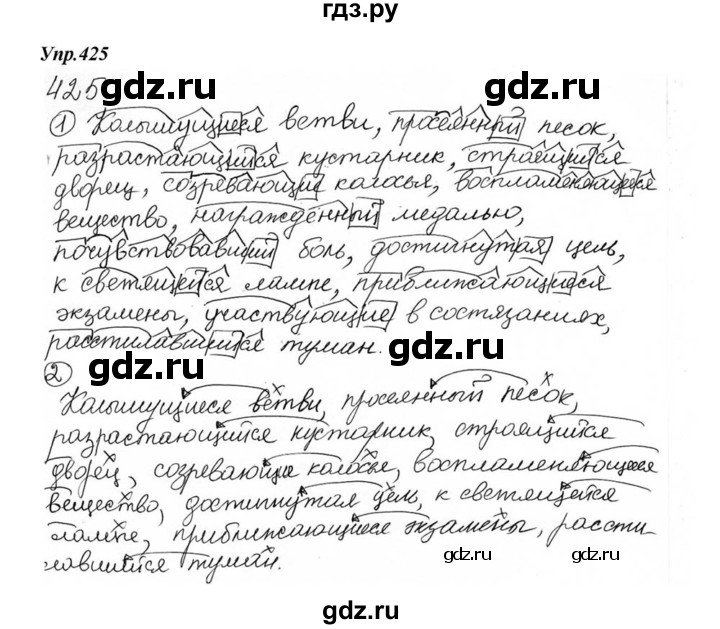 гдз.ру
Упр.425
425 gdz.ru gdz.ru
1 Колышущиеся ветви, просеянный песок,
разрастающийся кустарник, строящийся
дворец, созревающие колосья, воспламеняющееся
вещество, награждённый медалью,
почувствовавший боль, достигнутая цель,
к светящейся лампе, приближающиеся
экзамены, участвующие в состязаниях,
расстилавшийся туман.
gdz.ru gdz.ru
2
Колышущиеся ветви, просеянный песок,
разрастающийся кустарник, строящийся
дворец, созревающие колосья, воспламеняющееся
вещество, достигнутая цель, к светящейся
лампе, приближающиеся экзамены, рассти-
лавшийся туман.
gdz.ru gdz.ru
gdz.ru